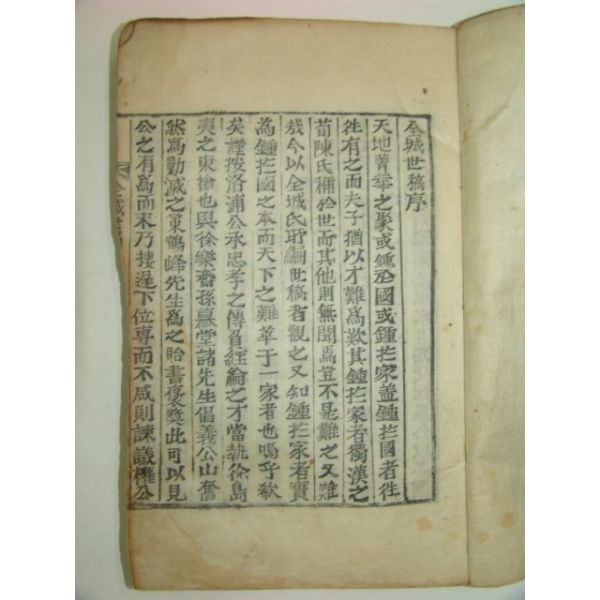 全城世稿序
天地菁華之聚或鍾於國或鍾於家盖鍾於國者徃
徃有之而夫子猶以才難爲歎其鍾於家者獨漢之
荀陳氏稱於世而其他則無聞焉豈不是難之又難
哉今以全城氏所編世稿者觀之又知鍾於家者實
爲鍾於國之本而天下之難萃于一家者也嗚乎欷
矣謹按洛浦公承忠孝之傳負經綸之才當執徐島
夷之東搶也與徐樂齋孫慕堂諸先生倡義公山奮
然爲勦滅之策鶴峰先生爲之貽書褒奬此可以見
公之有爲而末乃捿遲下位專而不咸則諫議權公
全城世稿